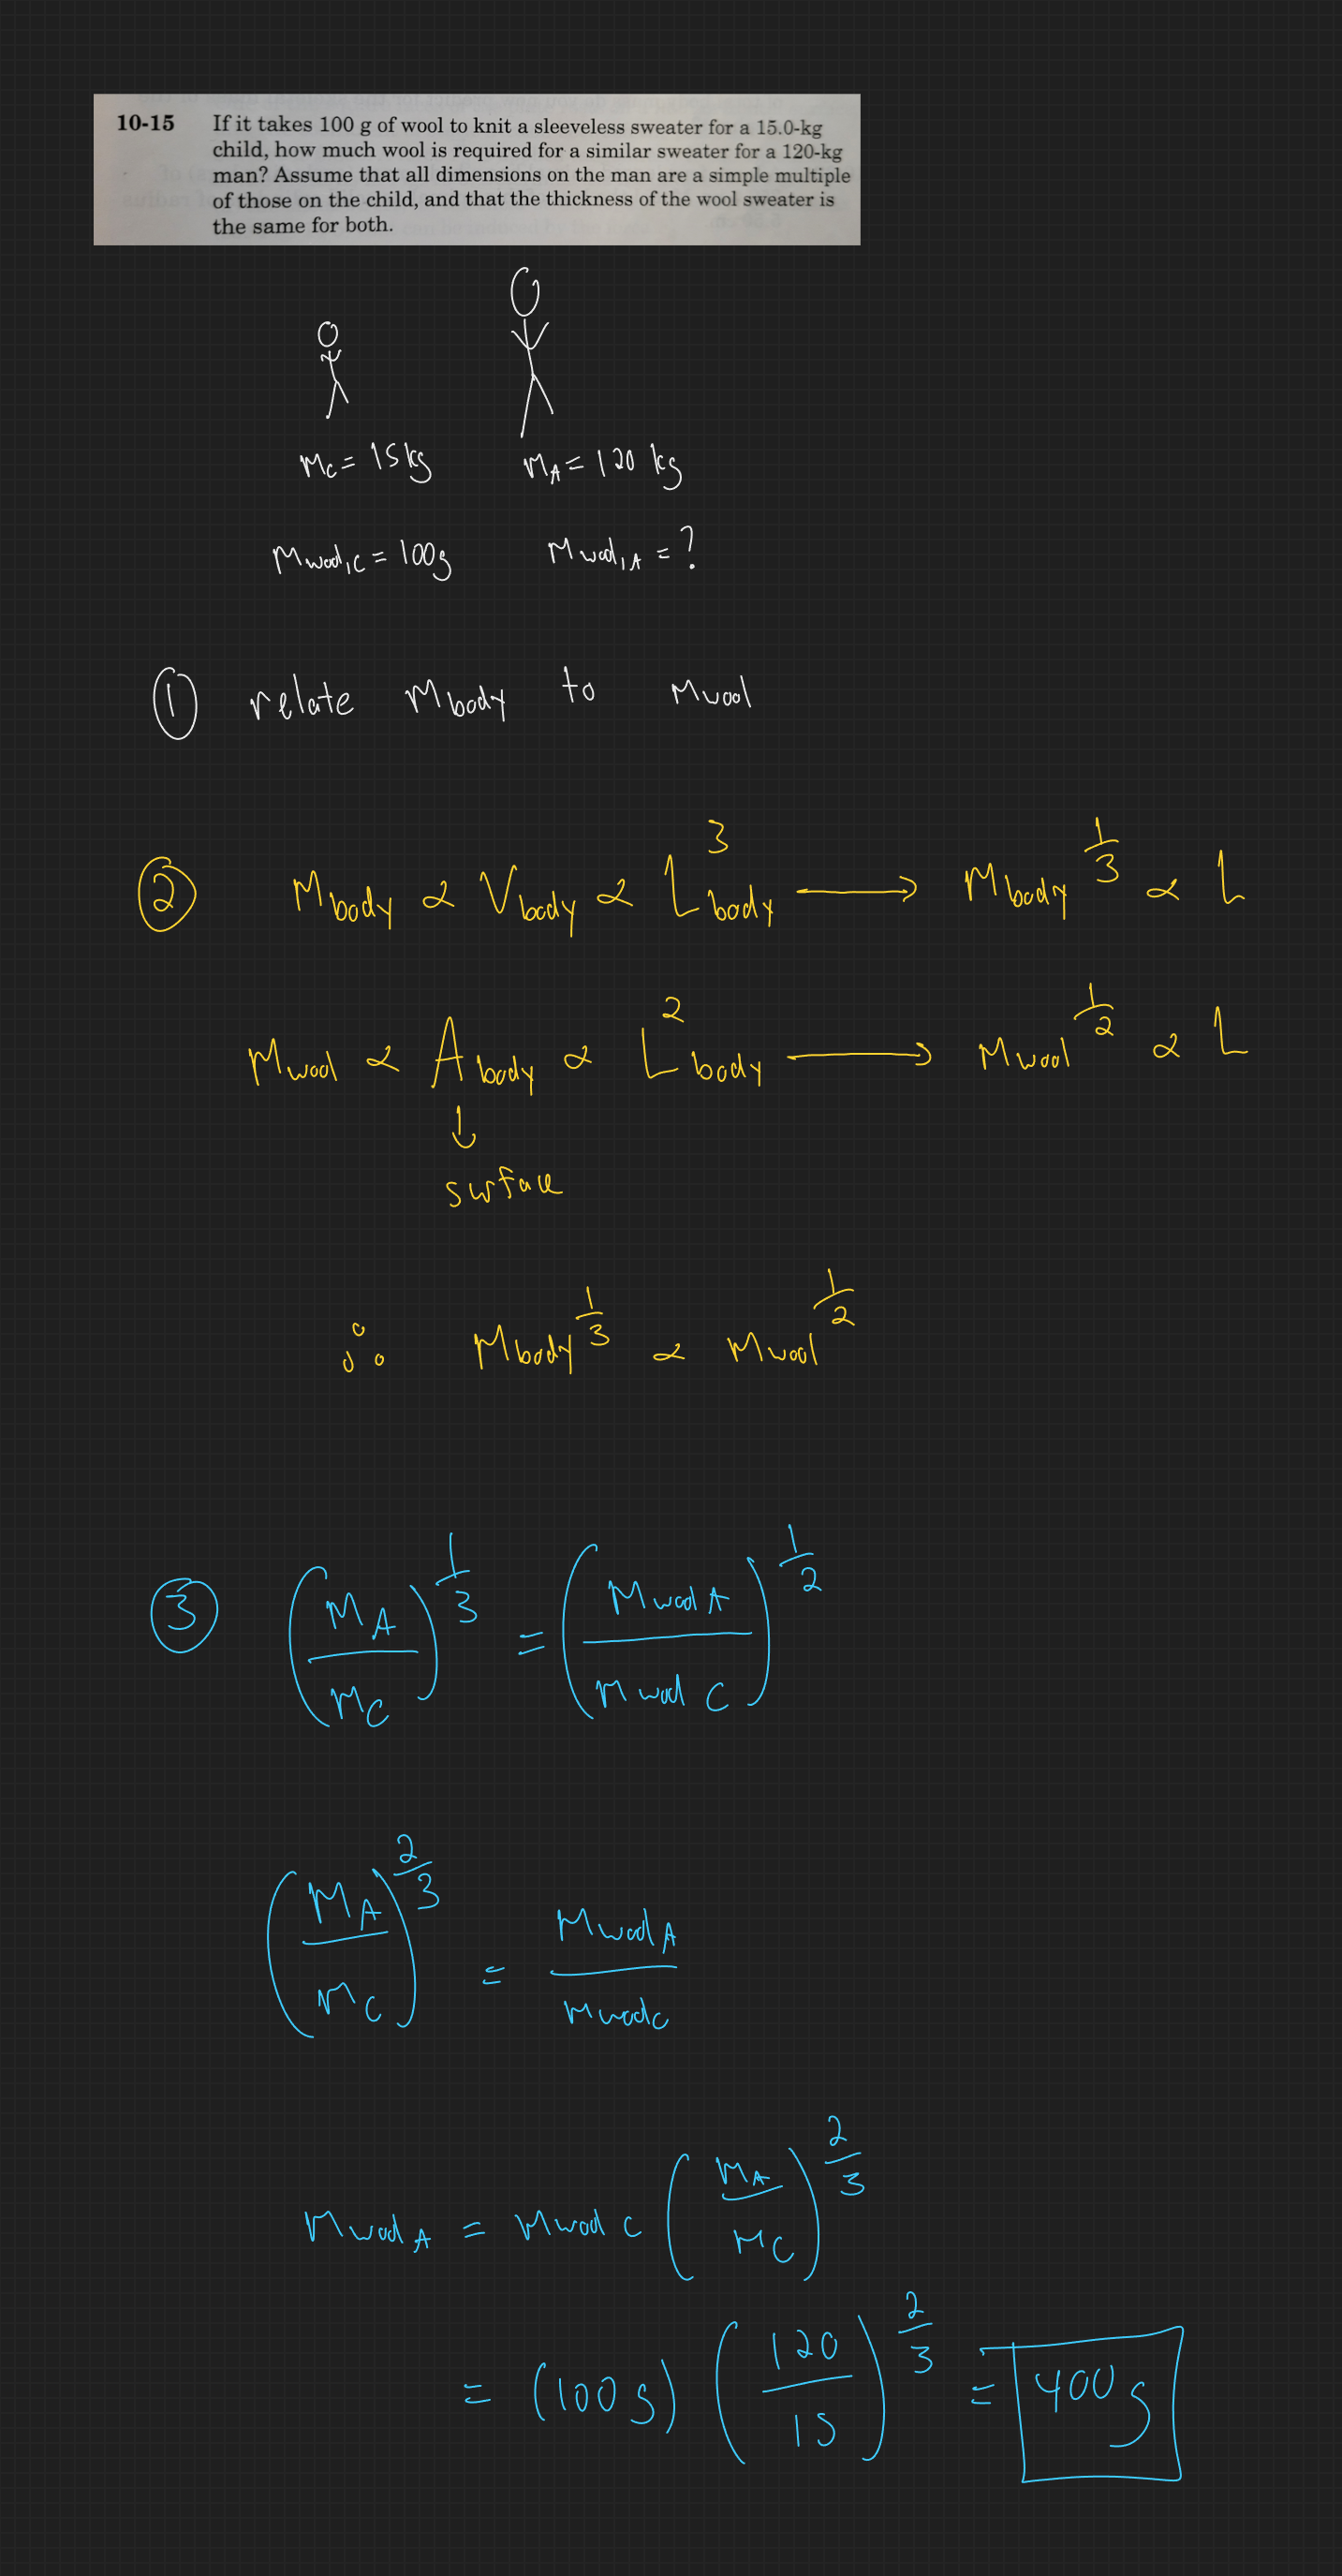 10-15 If it takes 100 g of wool to knit a sleeveless sweater for a 15.0-kg
child, how much wool is required for a similar sweater for a 120-kg
man? Assume that all dimensions on the man are a simple multiple
of those on the child, and that the thickness of the wool sweater is
the same for both.
M_C = 15 kg M_A = 120 kg
M_wool,C = 100g M_wool,A = ?
① relate M_body to M_wool
② M_body ∝ V_body ∝ L_body^3 → M_body^(1/3) ∝ L
M_wool ∝ A_body ∝ L_body^2 → M_wool^(1/2) ∝ L
↓
surface
∴ M_body^(1/3) ∝ M_wool^(1/2)
③ (M_A / M_C)^(1/3) = (M_wool A / M_wool C)^(1/2)
(M_A / M_C)^(2/3) = M_wool A / M_wool C
M_wool A = M_wool C (M_A / M_C)^(2/3)
= (100 g) (120 / 15)^(2/3) = 400 g